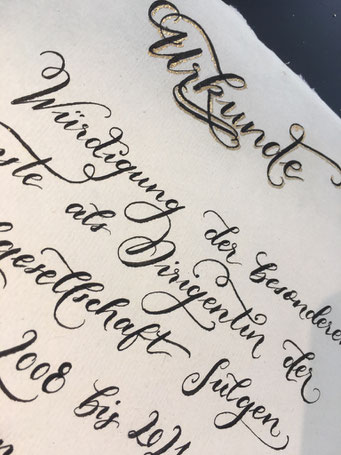 Urkunde
Würdigung der besonderen
als Dirigentin der
gesellschaft Sulgen
2008 bis 2021